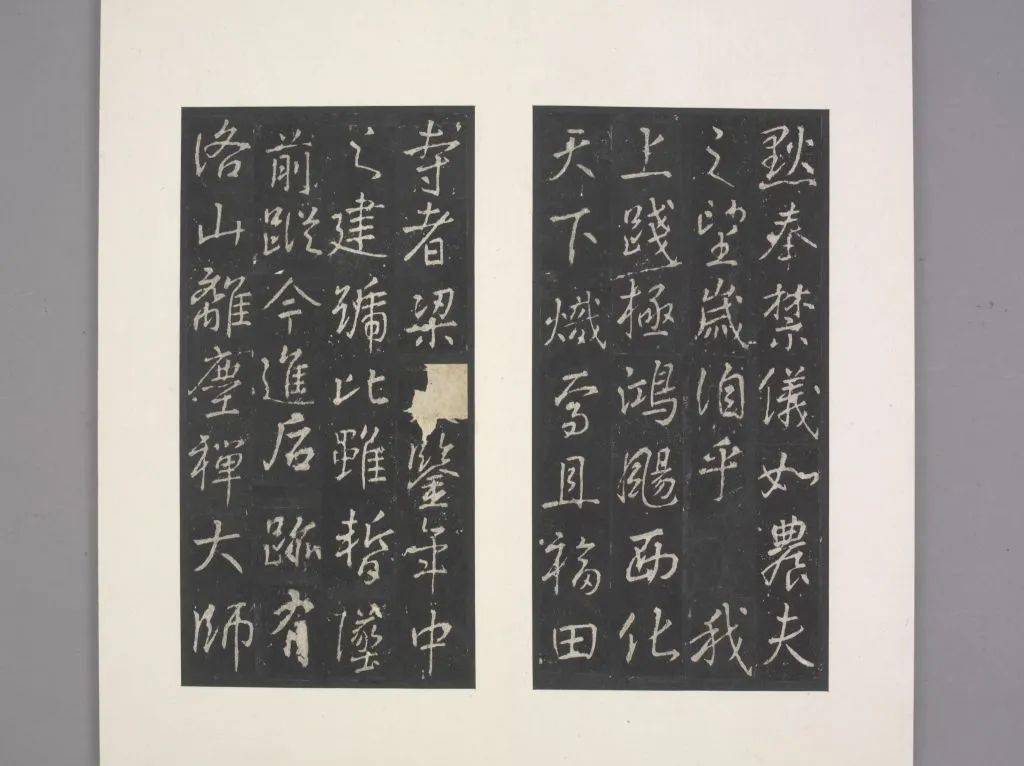 黙奉禁儀如農夫
之望歲洎乎 我
上踐極鴻颺西化
天下熾焉且福田
寺者梁 鑒年中
之建號比雖暫墜
前蹤今進后跡有
洛山離塵禪大師